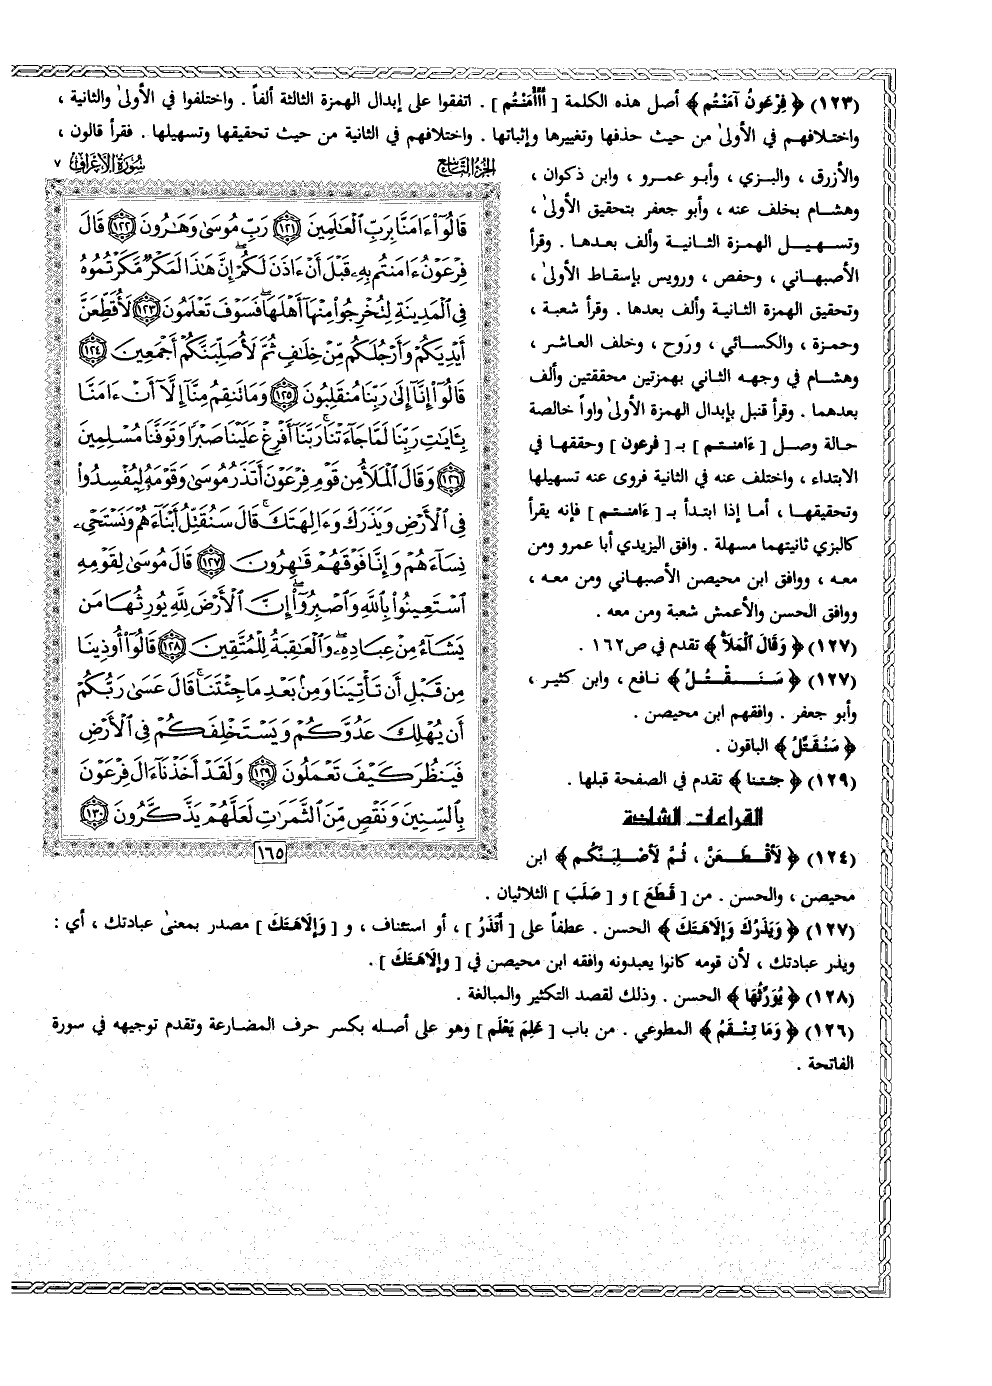 (١٢٣) ﴿ فِرْعَونُ آمَنْتُم ﴾ أصل هذه الكلمة [ أَأَأْمَنْتُم ] . اتفقوا على إبدال الهمزة الثالثة ألفاً . واختلفوا في الأولىٰ والثانية ،
واختلافهم في الأولىٰ من حيث حذفها وتغييرها وإثباتها . واختلافهم في الثانية من حيث تحقيقها وتسهيلها . فقرأ قالون ،
والأزرق ، والبزي ، وأبو عمرو ، وابن ذكوان ،
وهشام بخلف عنه ، وأبو جعفر بتحقيق الأولىٰ ،
وتسهيل الهمزة الثانية وألف بعدها . وقرأ
الأصبهاني ، وحفص ، ورويس بإسقاط الأولىٰ ،
وتحقيق الهمزة الثانية وألف بعدها . وقرأ شعبة ،
وحمزة ، والكسائي ، وروح ، وخلف العاشر ،
وهشام في وجهه الثاني بهمزتين محققتين وألف
بعدهما . وقرأ قنبل بإبدال الهمزة الأولىٰ واواً خالصة
حالة وصل [ ءَامنتم ] بـ [ فرعون ] وحققها في
الابتداء ، واختلف عنه في الثانية فروى عنه تسهيلها
وتحقيقها ، أما إذا ابتدأ بـ [ ءَامنتم ] فإنه يقرأ
كالبزي ثانيتهما مسهلة . وافق اليزيدي أبا عمرو ومن
معه ، ووافق ابن محيصن الأصبهاني ومن معه ،
ووافق الحسن والأعمش شعبة ومن معه .
(١٢٧) ﴿ وَقَالَ الْمَلَأُ ﴾ تقدم في ص١٦٢ .
(١٢٧) ﴿ سَنَقْتُلُ ﴾ نافع ، وابن كثير ،
وأبو جعفر . وافقهم ابن محيصن .
﴿ سَنُقَتِّلُ ﴾ الباقون .
(١٢٩) ﴿ جئتنا ﴾ تقدم في الصفحة قبلها .
القراءات الشاذة
(١٢٤) ﴿ لَأَقْطَعَنَّ ، ثُمَّ لَأَصْلِبَنَّكُم ﴾ ابن
محيصن ، والحسن . من [ قَطَعَ ] و [ صَلَبَ ] الثلاثيان .
(١٢٧) ﴿ وَيَذَرُكَ وَإِلَاهَتَكَ ﴾ الحسن . عطفاً على [ أَتَذَرُ ] ، أو استئناف ، و [ وَإِلَاهَتَكَ ] مصدر بمعنىٰ عبادتك ، أي :
ويذر عبادتك ، لأن قومه كانوا يعبدونه وافقه ابن محيصن في [ وإلَاهَتَكَ ] .
(١٢٨) ﴿ يُوَرِّثُهَا ﴾ الحسن . وذلك لقصد التكثير والمبالغة .
(١٢٦) ﴿ وَمَا تِنْقَمُ ﴾ المطوعي . من باب [ عَلِمَ يَعْلَم ] وهو على أصله بكسر حرف المضارعة وتقدم توجيهه في سورة
الفاتحة .
الجزء التاسع
سورة الأعراف ٧
قَالُوٓاْ ءَامَنَّا بِرَبِّ ٱلْعَٰلَمِينَ ١٢١ رَبِّ مُوسَىٰ وَهَٰرُونَ ١٢٢ قَالَ
فِرْعَوْنُ ءَامَنتُم بِهِۦ قَبْلَ أَنْ ءَاذَنَ لَكُمْ إِنَّ هَٰذَا لَمَكْرٌ مَّكَرْتُمُوهُ
فِى ٱلْمَدِينَةِ لِتُخْرِجُواْ مِنْهَآ أَهْلَهَا فَسَوْفَ تَعْلَمُونَ ١٢٣ لَأُقَطِّعَنَّ
أَيْدِيَكُمْ وَأَرْجُلَكُم مِّنْ خِلَٰفٍ ثُمَّ لَأُصَلِّبَنَّكُمْ أَجْمَعِينَ ١٢٤
قَالُوٓاْ إِنَّآ إِلَىٰ رَبِّنَا مُنقَلِبُونَ ١٢٥ وَمَا تَنقِمُ مِنَّآ إِلَّآ أَنْ ءَامَنَّا
بِـَٔايَٰتِ رَبِّنَا لَمَّا جَآءَتْنَا رَبَّنَآ أَفْرِغْ عَلَيْنَا صَبْرًا وَتَوَفَّنَا مُسْلِمِينَ
١٢٦ وَقَالَ ٱلْمَلَأُ مِن قَوْمِ فِرْعَوْنَ أَتَذَرُ مُوسَىٰ وَقَوْمَهُۥ لِيُفْسِدُواْ
فِى ٱلْأَرْضِ وَيَذَرَكَ وَءَالِهَتَكَ قَالَ سَنُقَتِّلُ أَبْنَآءَهُمْ وَنَسْتَحْىِۦ
نِسَآءَهُمْ وَإِنَّا فَوْقَهُمْ قَٰهِرُونَ ١٢٧ قَالَ مُوسَىٰ لِقَوْمِهِ
ٱسْتَعِينُواْ بِٱللَّهِ وَٱصْبِرُوٓاْ إِنَّ ٱلْأَرْضَ لِلَّهِ يُورِثُهَا مَن
يَشَآءُ مِنْ عِبَادِهِۦ وَٱلْعَٰقِبَةُ لِلْمُتَّقِينَ ١٢٨ قَالُوٓاْ أُوذِينَا
مِن قَبْلِ أَن تَأْتِيَنَا وَمِنۢ بَعْدِ مَا جِئْتَنَا قَالَ عَسَىٰ رَبُّكُمْ
أَن يُهْلِكَ عَدُوَّكُمْ وَيَسْتَخْلِفَكُمْ فِى ٱلْأَرْضِ
فَيَنظُرَ كَيْفَ تَعْمَلُونَ ١٢٩ وَلَقَدْ أَخَذْنَآ ءَالَ فِرْعَوْنَ
بِٱلسِّنِينَ وَنَقْصٍ مِّنَ ٱلثَّمَرَٰتِ لَعَلَّهُمْ يَذَّكَّرُونَ ١٣٠
١٦٥